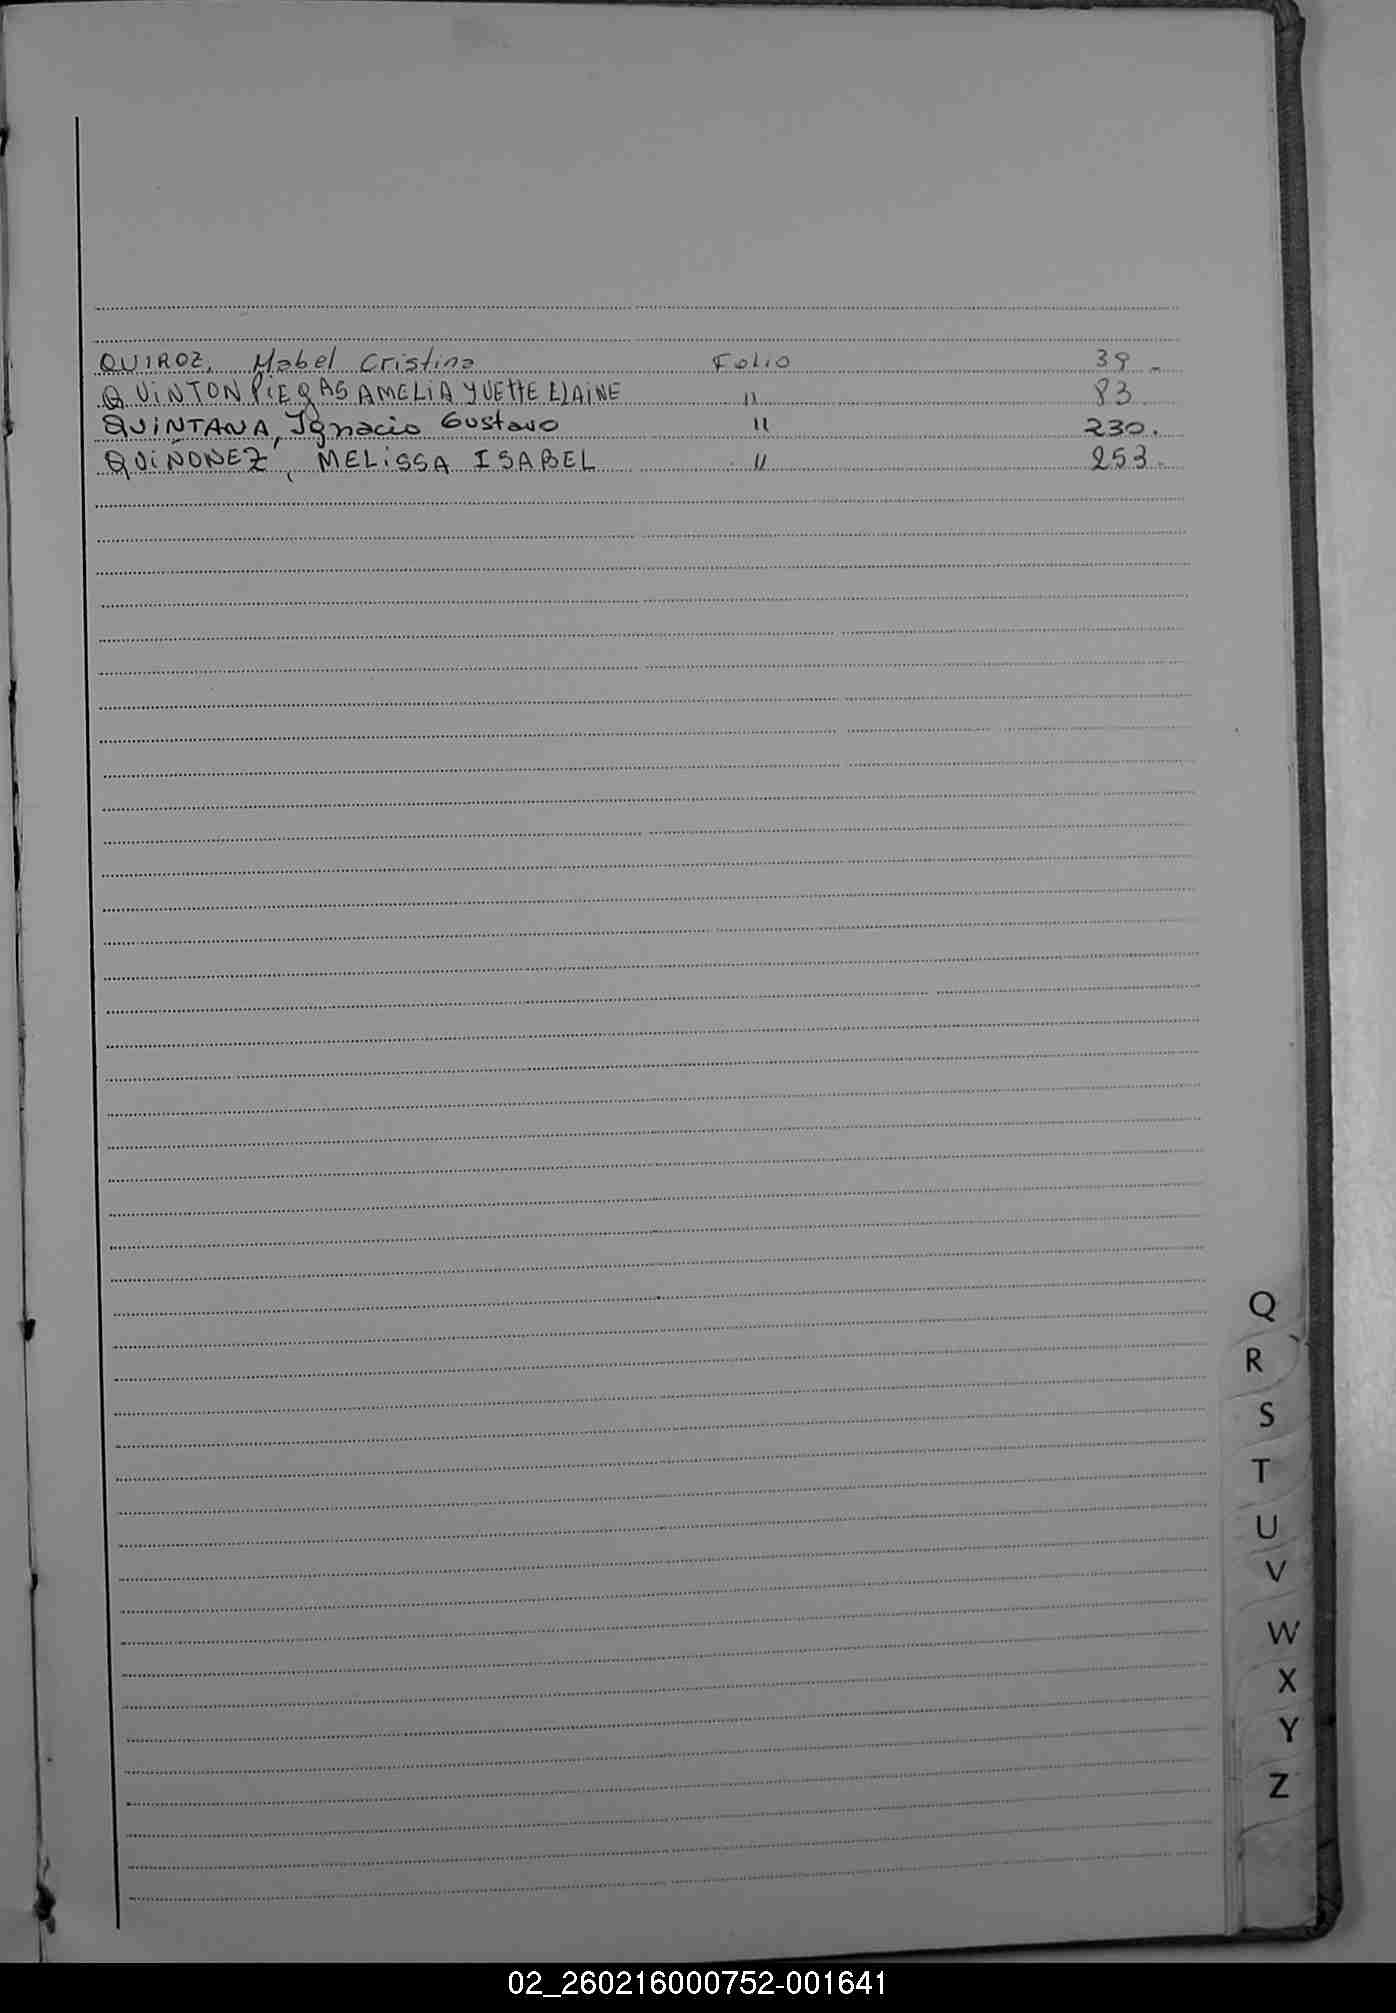 QUIROZ, Mabel Cristina Folio 39
QUINTON PIEGAS AMELIA YVETTE ELIAINE " 83
QUINTANA, Ignacio Gustavo " 230.
QUIÑONEZ, MELISSA ISABEL " 253.
Q
R
S
T
U
V
W
X
Y
Z
02_260216000752-001641